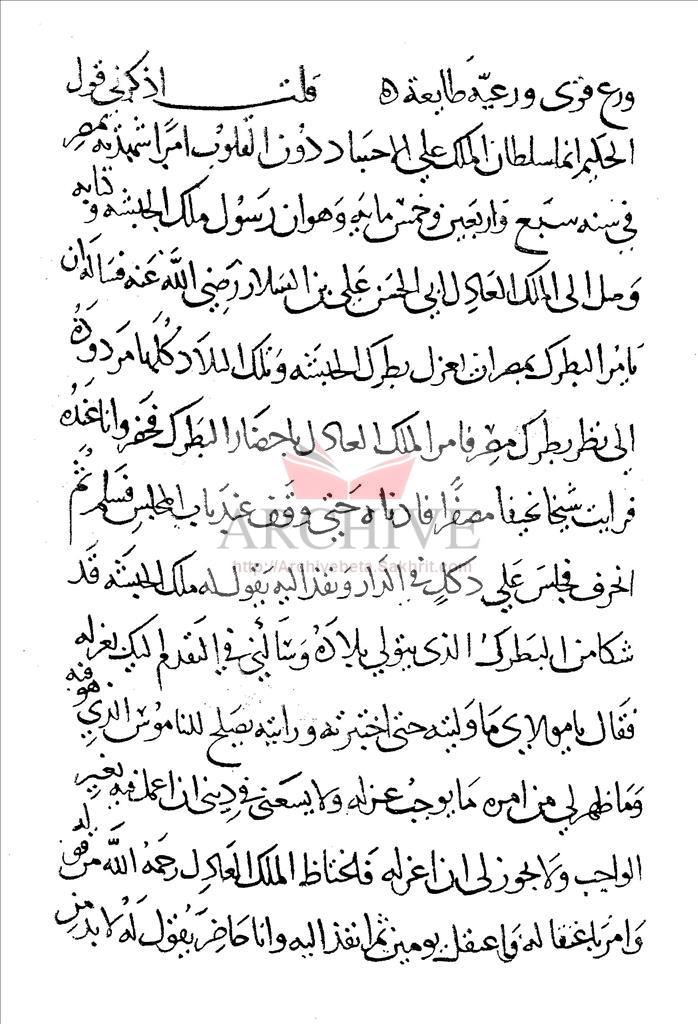 ورع قوى ورعيه طايعة ه قلت اذكرنى قول
الحكيم انما سلطان الملك على الاجساد دون القلوب امرا شهدته بمصر
فى سنه سبع واربعين وخمس مايه وهو ان رسول ملك الحبشه وكتابه
وصل الى الملك العادل ابى الحسن على بن السلار رضى الله عنه فساله ان
يامر البطرك بمصر ان يعزل بطرك الحبشه وتلك البلاد كلها مردودة
الى نظر بطرك مصر فامر الملك العادل باحضار البطرك فحضر وانا عنده
فرايت شيخا نحيفا مصفرا فادناه حتى وقف عند باب المجلس فسلم ثم
ARCHIVE
http://Archivebeta.Sakhrit.com
انحرف فجلس على دكل فى الدار ونفذ اليه يقول له ملك الحبشه قد
شكا من البطرك الذى يتولى بلاده وسألنى فى التقدم اليك بعزله
فقال يا مولاى ما وليته حتى اختبرته ورايته يصلح للناموس الذى هو فيه
وما ظهر لى من امره ما يوجب عزله ولا يسعنى فى دينى ان اعمل فيه بغير
الواجب ولا يجوز لى ان اعزله فاغتاظ الملك العادل رحمه الله من قوله
وامر باعتقاله واعتقل يومين ثم انفذ اليه وانا حاضر يقول له لا بد من